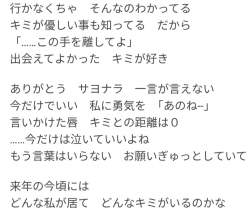 行かなくちゃ　そんなのわかってる
キミが優しい事も知ってる　だから
「……この手を離してよ」
出会えてよかった　キミが好き
ありがとう　サヨナラ　一言が言えない
今だけでいい　私に勇気を　「あのね--」
言いかけた唇　キミとの距離は０
……今だけは泣いていいよね
もう言葉はいらない　お願いぎゅっとしていて
来年の今頃には
どんな私が居て　どんなキミがいるのかな